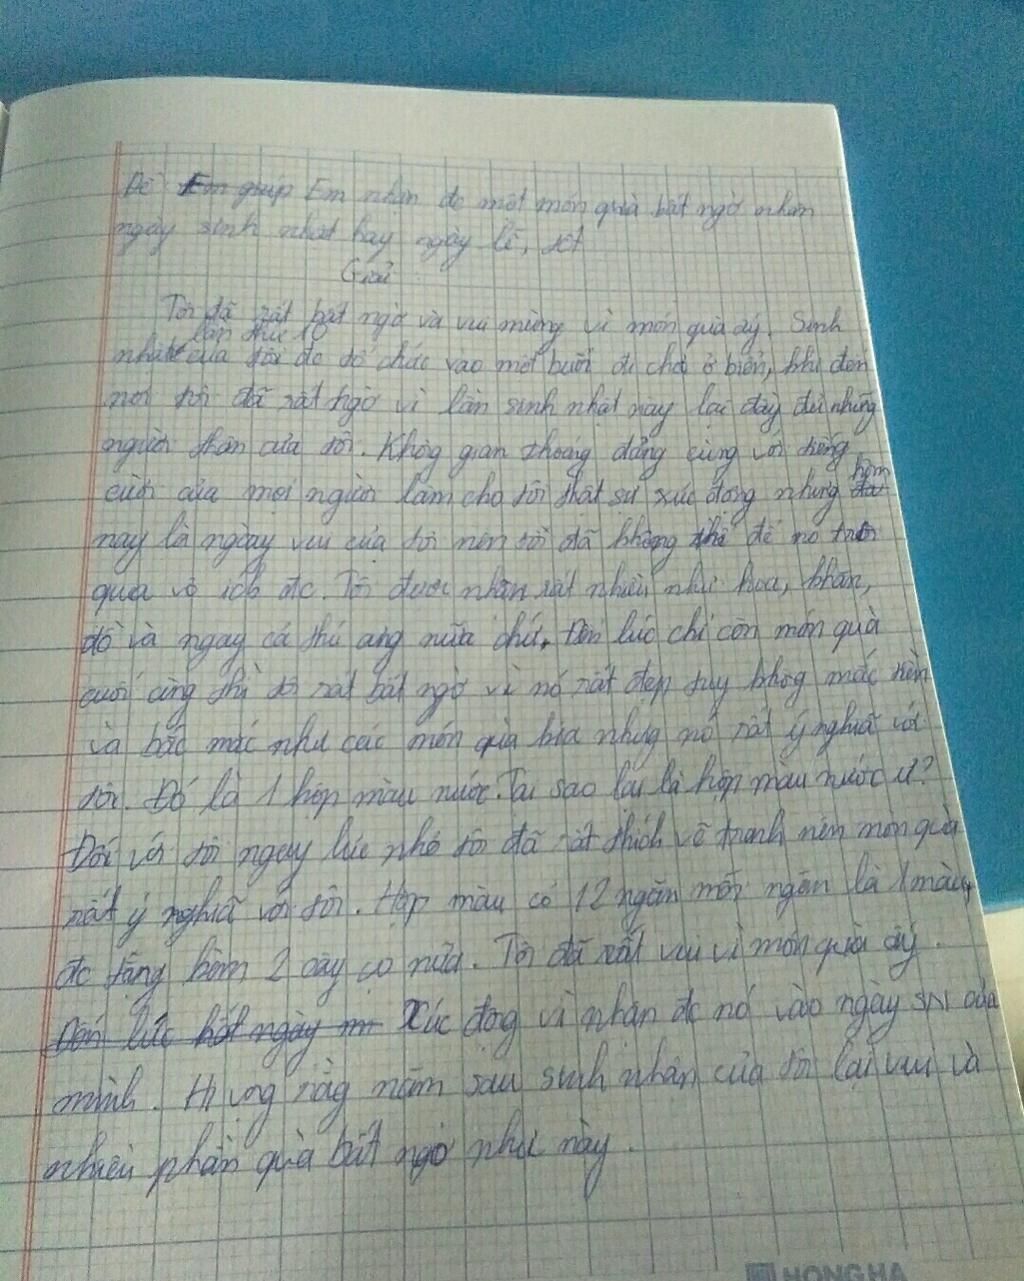 Đề Em giúp Em nhận đc một món quà bất ngờ nhân
ngày sinh nhật hay ngày lễ, tết
Giải
Tôi đã rất bất ngờ và vui mừng vì món quà ấy. Sinh
lần thứ 10
nhật của tôi đc tổ chức vào một buổi đi chơi ở biển, khi đến
nơi tôi đã rất ngờ vì lần sinh nhật này lại đầy đủ những
người thân của tôi. Không gian thoáng đảng cùng với tiếng
cười của mọi người làm cho tôi thật sự xúc động nhưng hôm
nay là ngày vui của tôi nên tôi đã không thể để nó trôi
qua vô ích đc. Tôi được nhận rất nhiều như hoa, khăn,
đồ và ngay cả thú nữa chứ. Đến lúc chỉ còn món quà
cuối cùng thì tôi rất bất ngờ vì nó rất đẹp tuy không mắc tiền
và mắc như các món quà kia nhưng nó rất ý nghĩa với
tôi. Đó là 1 hộp màu nước. Tại sao lại là hộp màu nước ư?
Đối với tôi ngay lúc nhỏ tôi đã rất thích vẽ tranh nên món quà
rất ý nghĩa với tôi. Hộp màu có 12 ngăn mỗi ngăn là 1 màu,
đc tặng kèm 2 cây cọ nữa. Tôi đã rất vui vì món quà ấy.
Đến lúc hết ngày Xúc động vì nhận đc nó vào ngày SN của
mình. Hi vọng rằng năm sau sinh nhân của tôi lại vui và
nhiều phần quà bất ngờ như này.
HONG HA